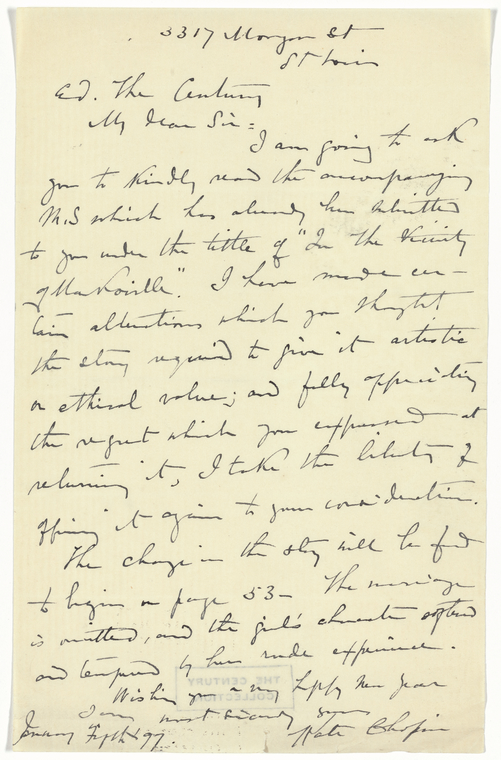 3317 Morgan St
St Louis
Ed. The Century
My Dear Sir:
I am going to ask
you to kindly read the accompanying
M.S which has already been submitted
to you under the title of "In the Vicinity
of Marksville". I have made cer-
tain alterations which you thought
the story required to give it artistic
or ethical value; and fully appreciating
the regret which you expressed at
returning it, I take the liberty of
offering it again to your consideration.
The change in the story will be found
to begin on page 53— The marriage
is omitted, and the girl's character softened
and tempered by her rude experience.
Wishing you a very happy New Year
I am most sincerely yours
Kate Chopin
January Fifth 97.
THE CENTURY
COLLECTION